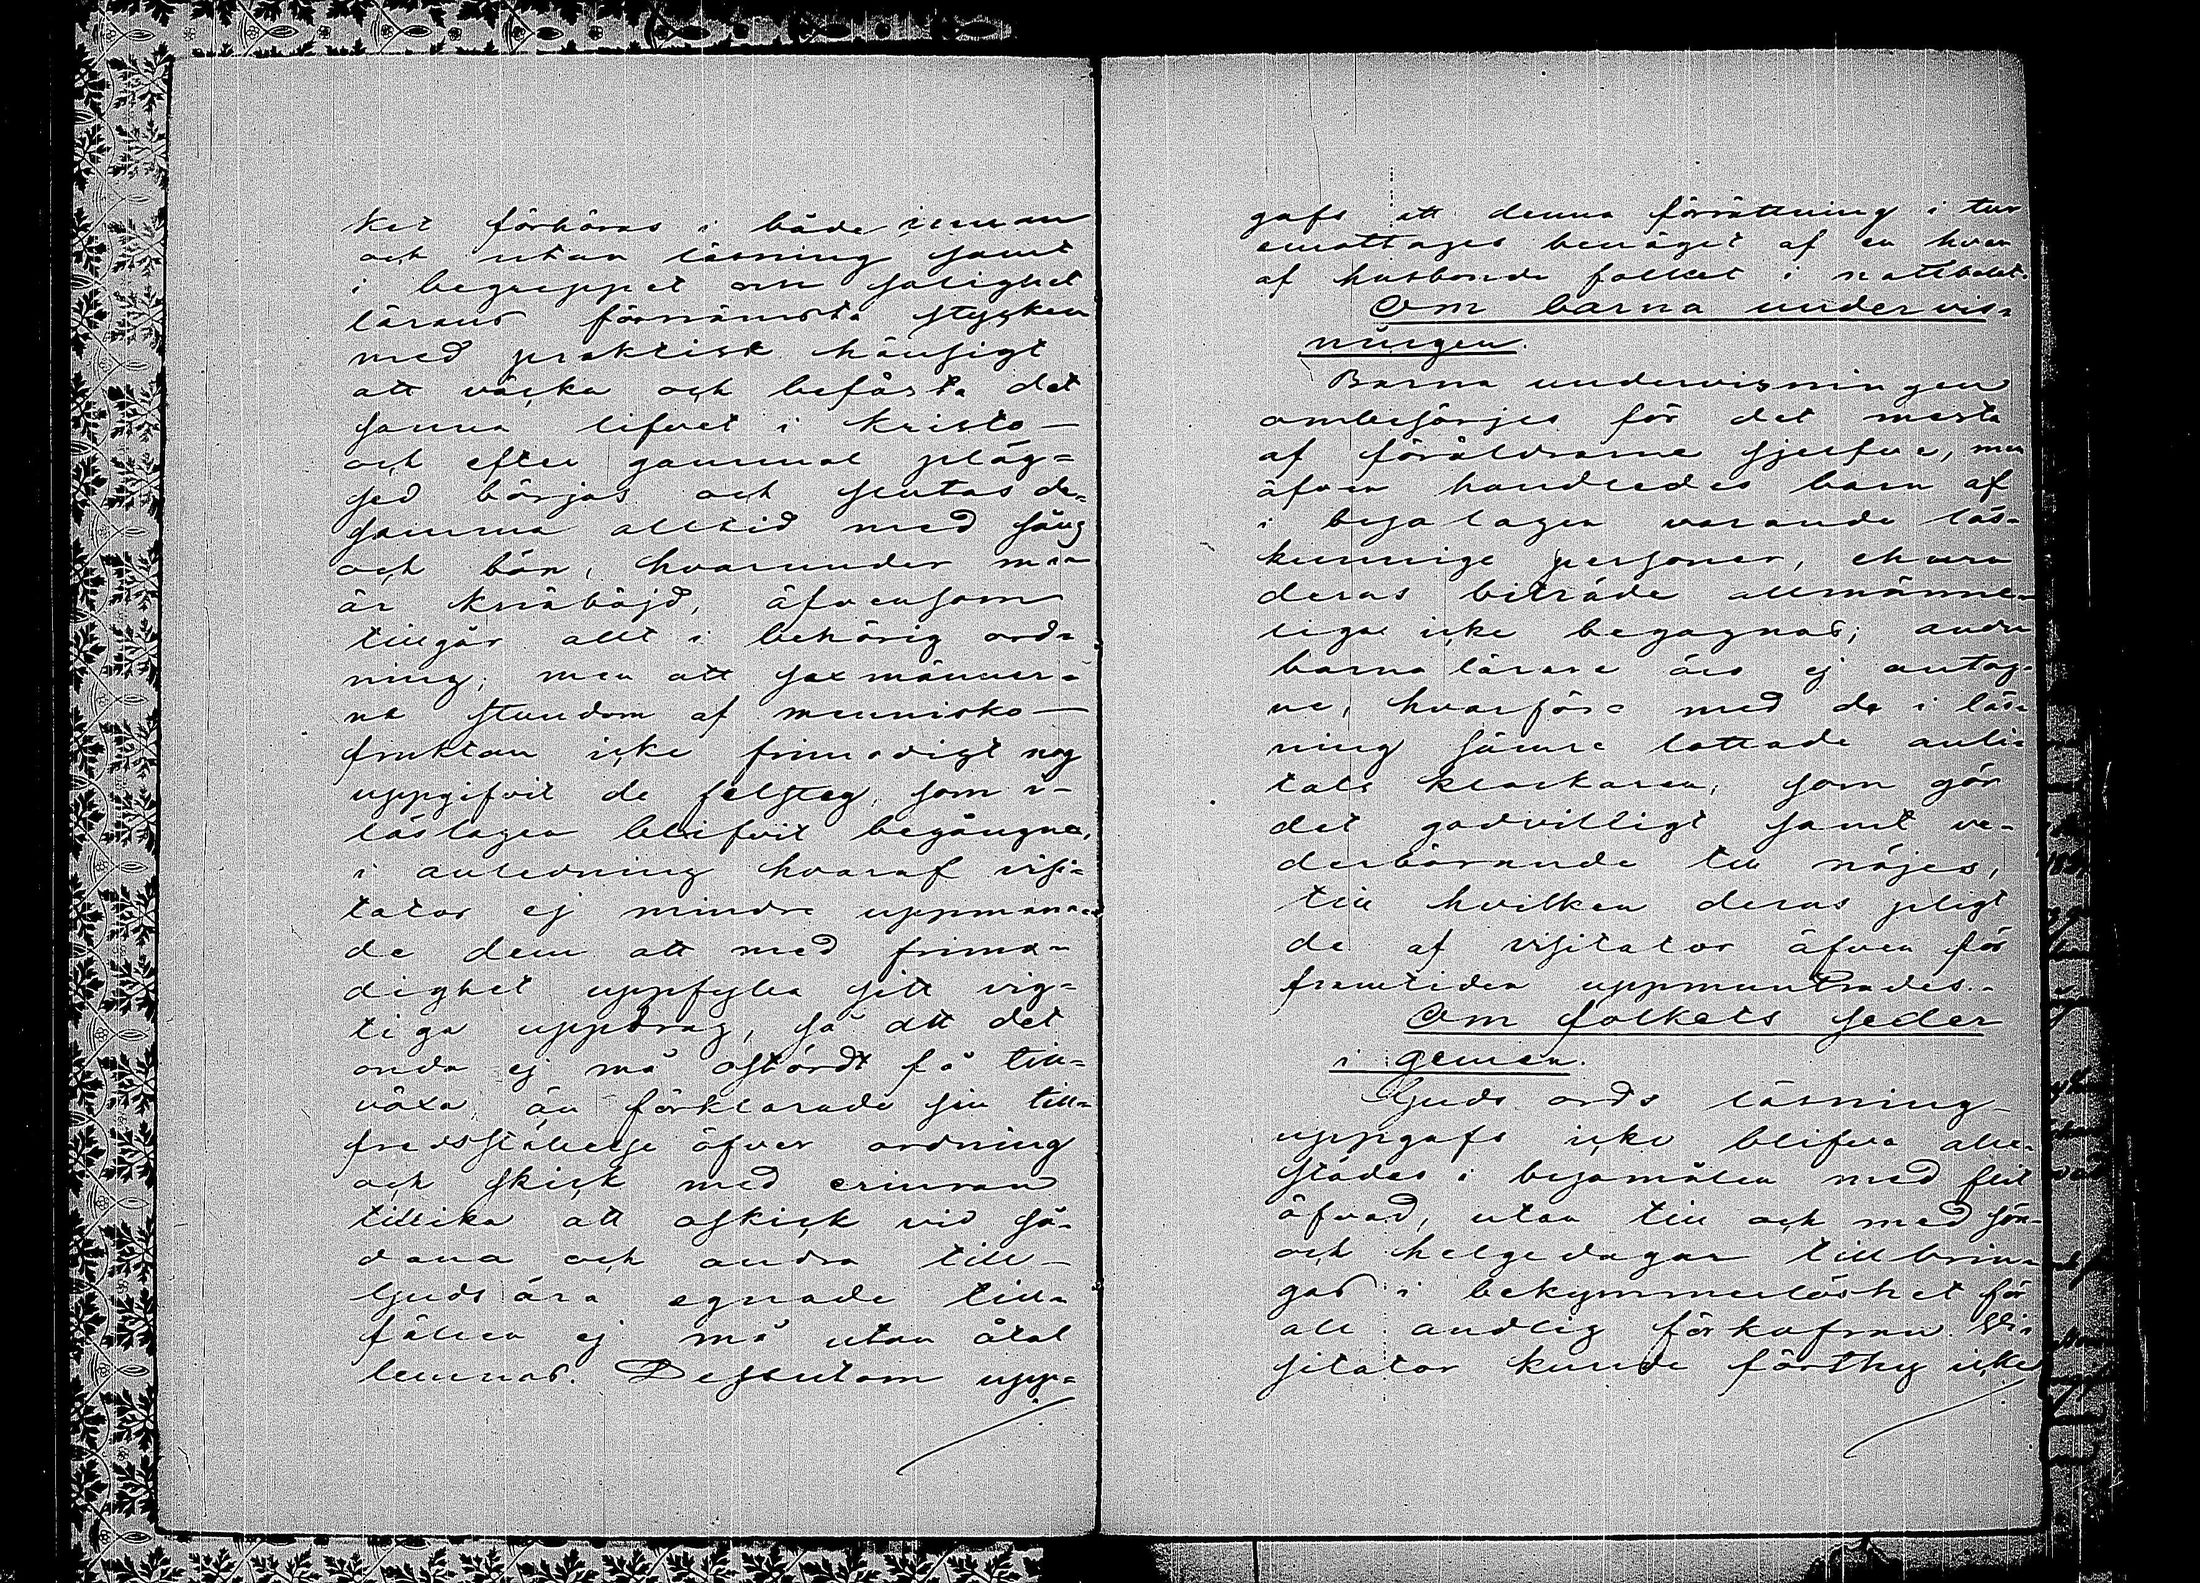 ket förhöras i både innan
och utan läsning samt
i begreppet om salighet
lärans förnämsta stycken
med praktisk hänsigt
att väcka och befästa det
sanna lifvet i Kristo—
och efter gammal pläg=
sed börjas och slutas de=
samma alltid med sång
och bön, hvarunder man
är knäböjd, äfvensom
tillgår allt i behörig ord=
ning; men att sexmänner=
na stundom af mennisko—
fruktan icke frimodigt nog
uppgifvit de felsteg, som i—
läslagen blifvit begångna,
i anledning hvaraf visi=
tator ej mindre uppmana=
de dem att med frimo=
dighet uppfylla sitt vig=
tiga uppdrag, så att det
onda ej må ostördt få till=
växa, än förklarade sin till=
fredsställelse öfver ordning
och skick med erinran
tillika att oskick vid så=
dana och andra till—
Guds ära egnade till=
fällen ej må utan åtal
lemnas. Dessutom upp=
gafs att denna förrättning i tur
emottages benäget af en hvar
af husbonde folket i nattbolet.
Om barna undervis=
ningen.
Barna undervisningen
ombesörjes för det mesta
af föräldrarne sjelfva, men
äfven handledes barn af
i byalagen varande läs=
kunnige personer, ehuru
deras biträde allmänne=
liga icke begagnas; andra
barna lärare äro ej antag=
ne, hvarföre med de i läs=
ning sämre lottade anli=
tats klockaren, som gör
det godvilligt samt ve=
derbörande till nöjes,
till hvilken deras pligt
de af visitator äfven för
framtiden uppmuntrades.—
Om folkets seder
i gemen.
Guds ords läsning—
uppgafs icke blifva alle=
städes i byamålen med flit
öfvad, utan till och med sön=
och helgedagar tillbrin=
gas i bekymmerlöshet för
all andlig förkofran. Vi=
sitator kunde förthy icke